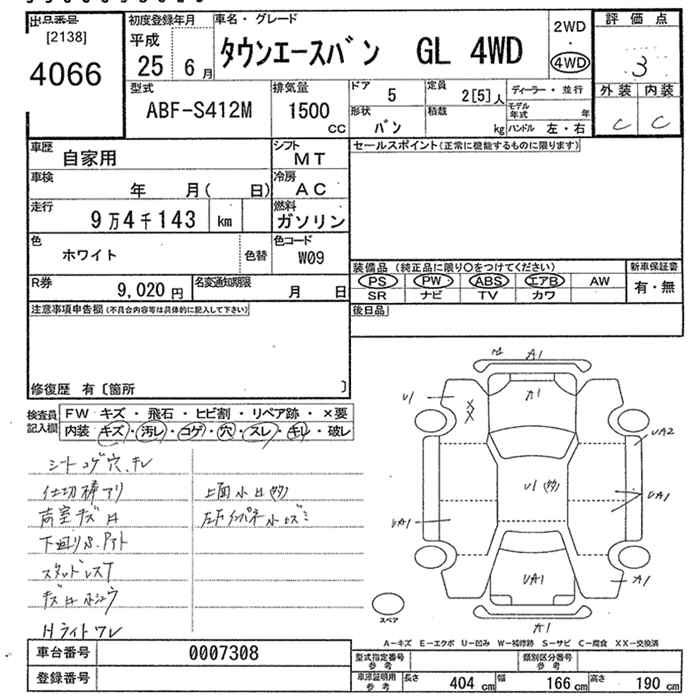 出品番号
[2138]
4066
初度登録年月
平成
25 6月
車名・グレード
タウンエースバン GL 4WD
2WD
・
4WD
評価点
3
外装 内装
C C
型式
ABF-S412M
排気量
1500
CC
ドア
5
定員
2[5]人
ディーラー・並行
形状
バン
積載
kg
モデル年式 年
ハンドル 左・右
車歴
自家用
シフト
MT
車検
年 月( 日)
冷房
AC
走行
9万4千143 km
燃料
ガソリン
色
ホワイト
色替
色コード
W09
R券
9,020円
名変通知期限
月 日
セールスポイント(正常に機能するものに限ります)
装備品(純正品に限り○をつけてください)
PS PW ABS エアB AW
SR ナビ TV カワ
新車保証書
有・無
後日品
注意事項申告欄(不具合内容等は具体的に記入して下さい)
修復歴 有〔箇所 〕
検査員記入欄
FW キズ・飛石・ヒビ割・リペア跡・×要
内装 キズ・汚レ・コゲ・穴・スレ・キレ・破レ
シートコゲ穴、キレ
仕切棒アリ
荷室キズ凹
上面小凹(多)
スタッドレスT
Hライトワレ
A1
A1
U1
XX
UA2
U1(多)
UA1
UA1
UA1
A1
A1
スペア
A-キズ E-エクボ U-凹み W-補修跡 S-サビ C-腐食 XX-交換済
車台番号
0007308
登録番号
型式指定番号参考
類別区分番号参考
車庫証明用参考
長さ 404 cm
幅 166 cm
高さ 190 cm